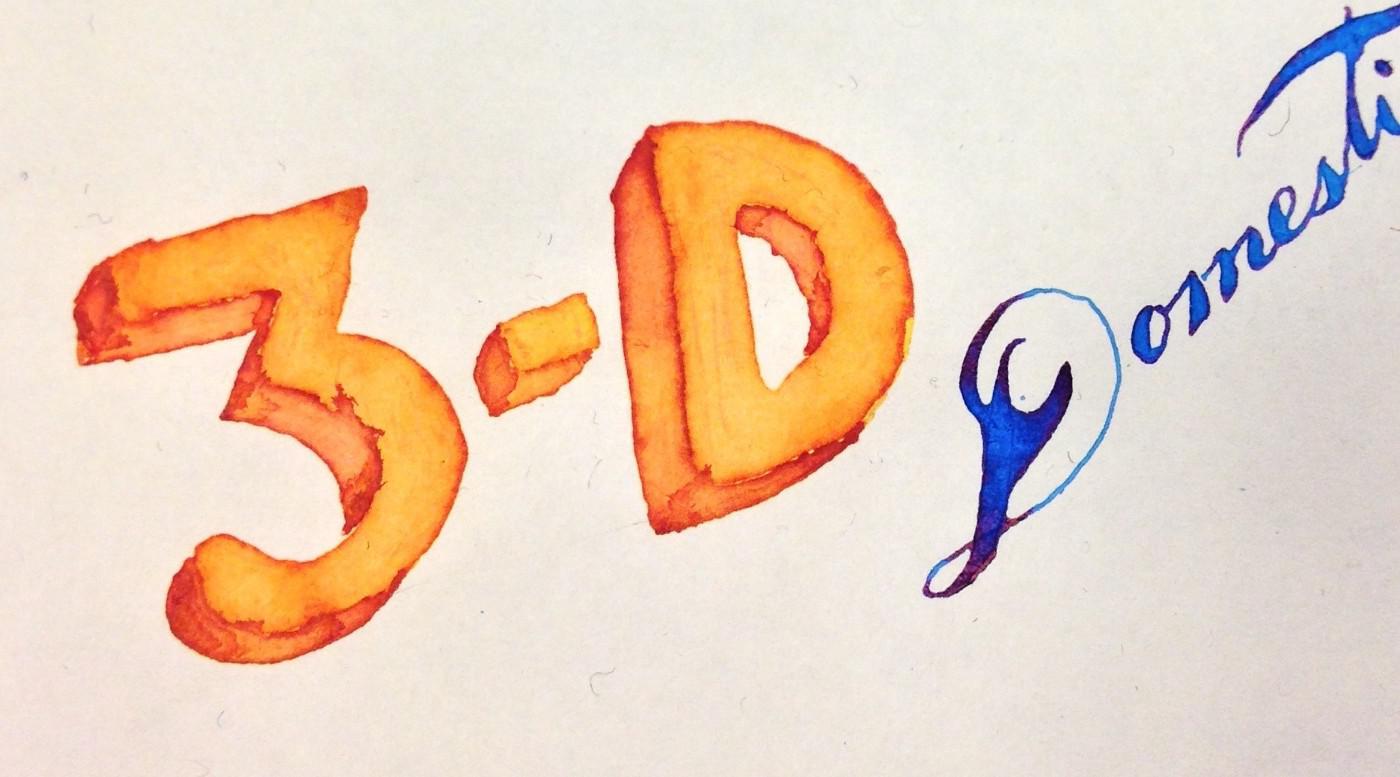 3-D
Domesti